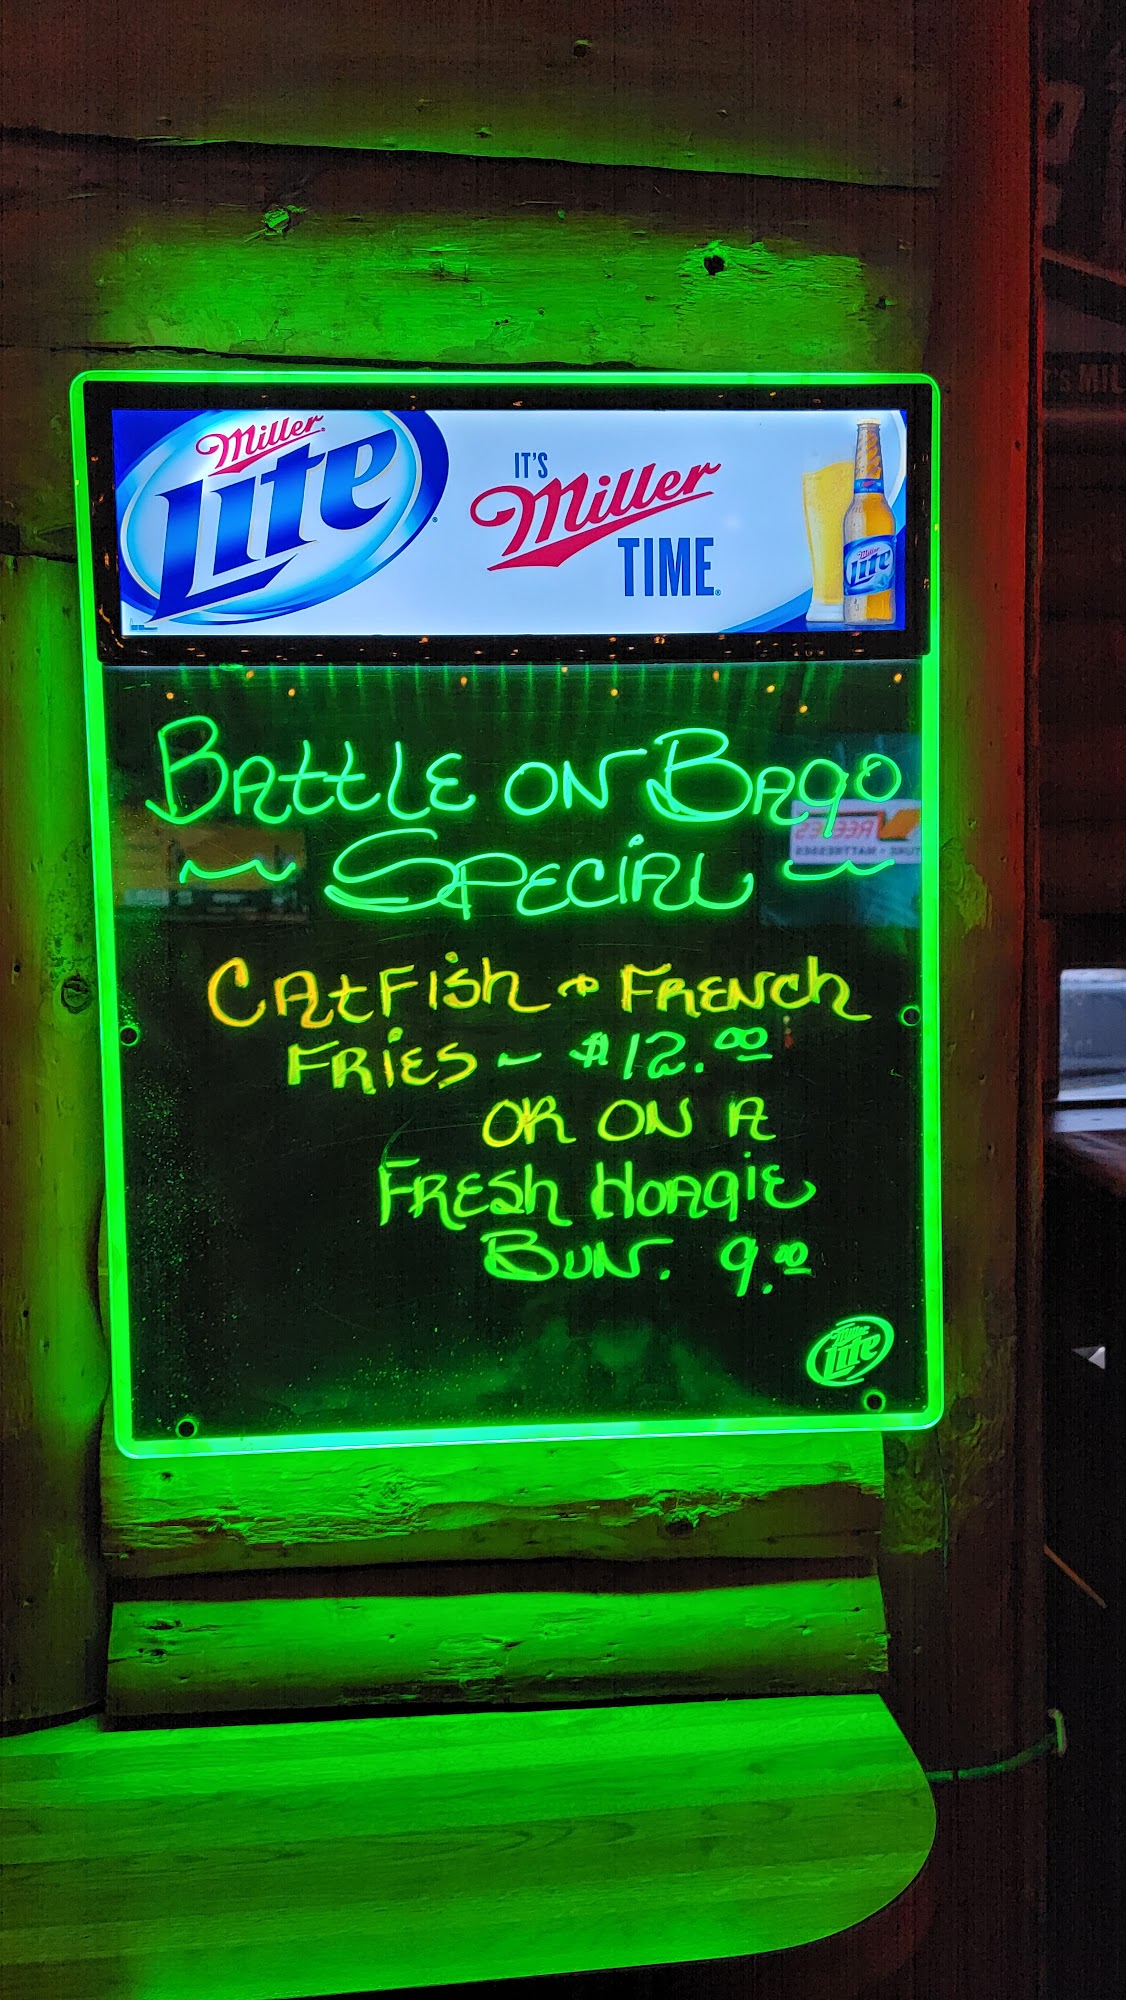 Miller
Lite
IT'S
Miller
TIME
Miller
Lite
BAttLE ON BAgo
~ SPECiAL ~
CAtFish + FRENch
FRiES ~ $12.00
OR ON A
FRESh HOAgiE
BUN. 9.00
Miller
Lite